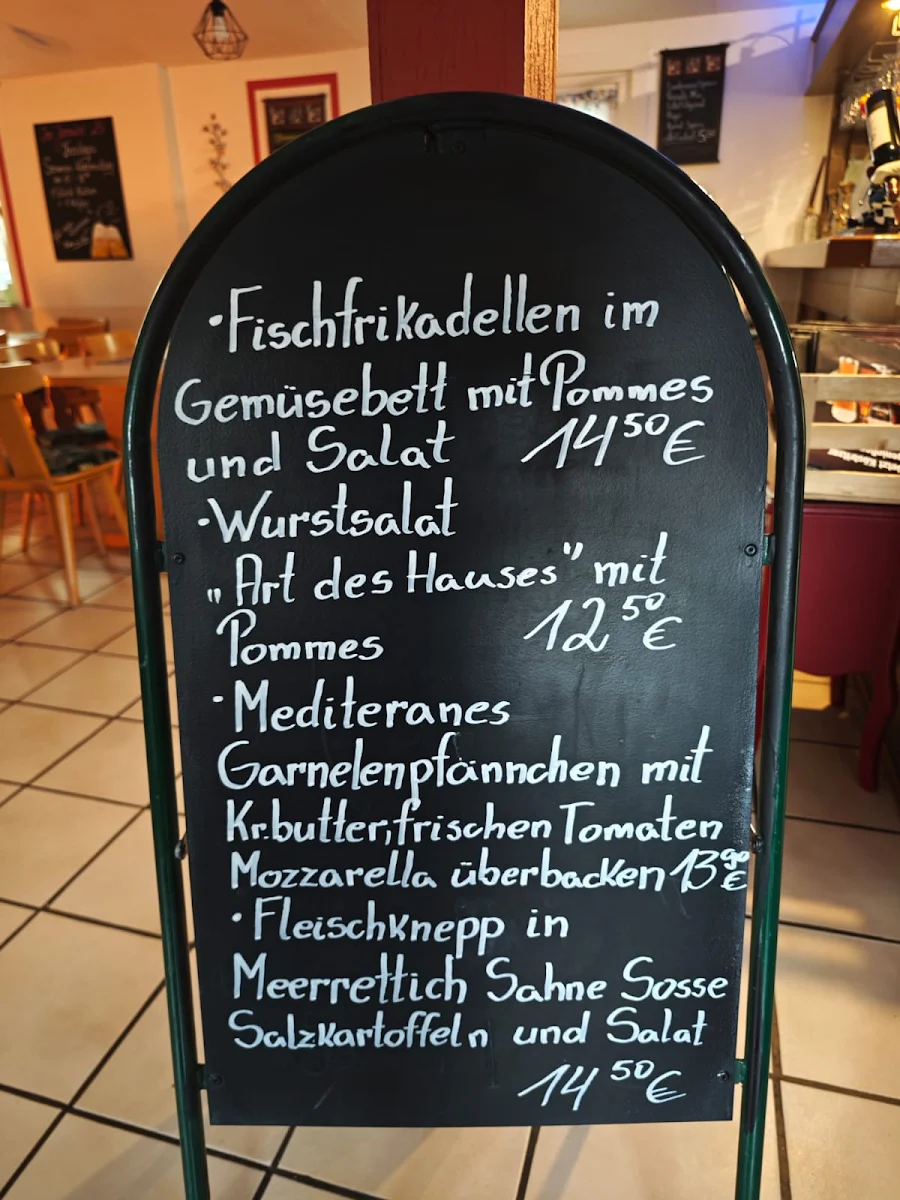 ·Fischfrikadellen im
Gemüsebett mit Pommes
und Salat 14⁵⁰€
·Wurstsalat
„Art des Hauses" mit
Pommes 12⁵⁰€
·Mediteranes
Garnelenpfännchen mit
Kr.butter, frischen Tomaten
Mozzarella überbacken 13⁹⁰€
·Fleischknepp in
Meerrettich Sahne Sosse
Salzkartoffeln und Salat
14⁵⁰€